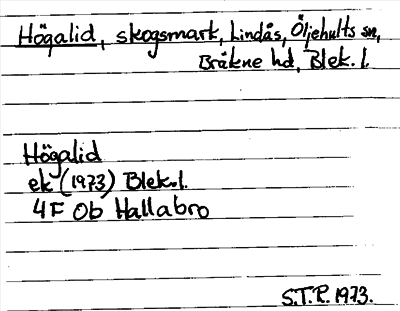 Högalid, skogsmark, Lindås, Öljehults sn,
Bräkne hd, Blek. l.
Högalid
ek (1973) Blek.l.
4F Ob Hallabro
S.T.R. 1973.